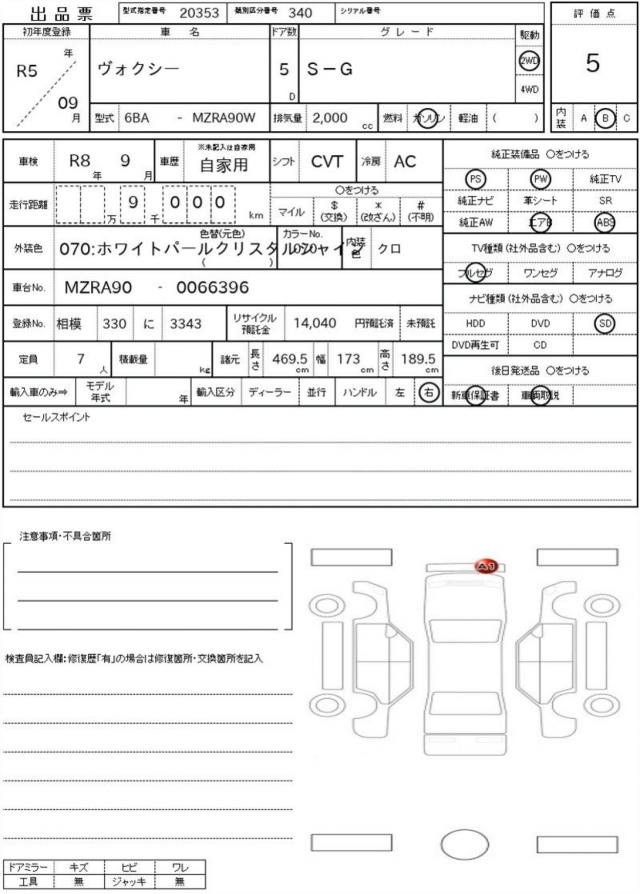 出品票 型式指定番号 20353 類別区分番号 340 シリアル番号
評価点
初年度登録 車名 ドア数 グレード 駆動
R5 年 09 月 ヴォクシー 5 D S-G 2WD 4WD
5
型式 6BA - MZRA90W 排気量 2,000 cc 燃料 ガソリン 軽油 ( ) 内装 A B C
車検 R8 年 9 月 車歴 ※未記入は自家用 自家用 シフト CVT 冷房 AC
純正装備品 ○をつける
PS PW 純正TV
純正ナビ 革シート SR
純正AW エアB ABS
走行距離 万 9 千 0 0 0 km ○をつける
マイル $ (交換) * (改ざん) # (不明)
外装色 色替(元色) 070:ホワイトパールクリスタルシャイン ( ) カラーNo. 内装色 クロ
TV種類(社外品含む) ○をつける
フルセグ ワンセグ アナログ
車台No. MZRA90 - 0066396
ナビ種類(社外品含む) ○をつける
HDD DVD SD
DVD再生可 CD
登録No. 相模 330 に 3343 リサイクル預託金 14,040 円預託済 未預託
定員 7 人 積載量 kg 諸元 長さ 469.5 cm 幅 173 cm 高さ 189.5 cm
後日発送品 ○をつける
新車保証書 車両取説
輸入車のみ⇒ モデル年式 年 輸入区分 ディーラー 並行 ハンドル 左 右
セールスポイント
注意事項・不具合箇所
A1
検査員記入欄:修復歴「有」の場合は修復箇所・交換箇所を記入
ドアミラー キズ ヒビ ワレ
工具 無 ジャッキ 無